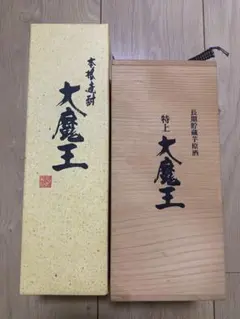 本格焼酎
大魔王
長期貯蔵芋原酒
特上
大魔王